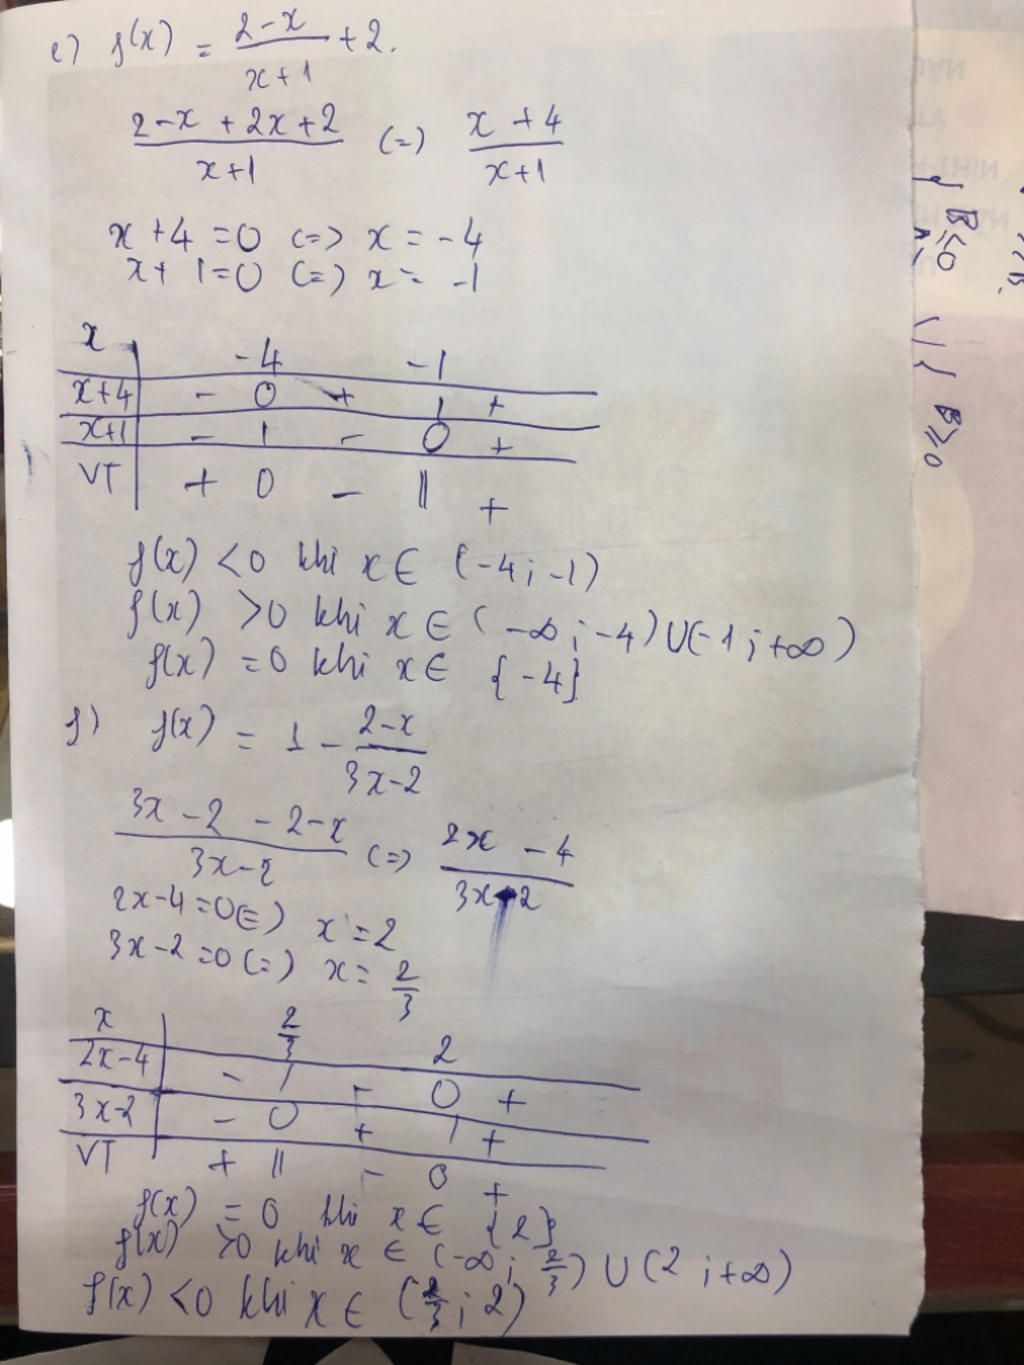 e) f(x) = (2-x)/(x+1) + 2.
(2-x + 2x+2)/(x+1) (=) (x +4)/(x+1)
x +4 =0 (=> x = -4
x+ 1=0 (=) x= -1
x -4 -1
x+4 - 0 + | +
x+1 - | - 0 +
VT + 0 - || +
f(x) <0 khi x∈ (-4; -1)
f(x) >0 khi x∈ (-∞; -4) U(-1; +∞)
f(x) =0 khi x∈ {-4}
f) f(x) = 1 - (2-x)/(3x-2)
(3x -2 -2-x)/(3x-2) (=) (2x -4)/(3x-2)
2x-4=0(=) x=2
3x-2=0(=) x= 2/3
x 2/3 2
2x-4 - | - 0 +
3x-2 - 0 + | +
VT + || - 0 +
f(x) = 0 khi x∈ {2}
f(x) >0 khi x ∈ (-∞; 2/3) U(2; +∞)
f(x) <0 khi x∈ (2/3; 2)
B≤0
B≥0